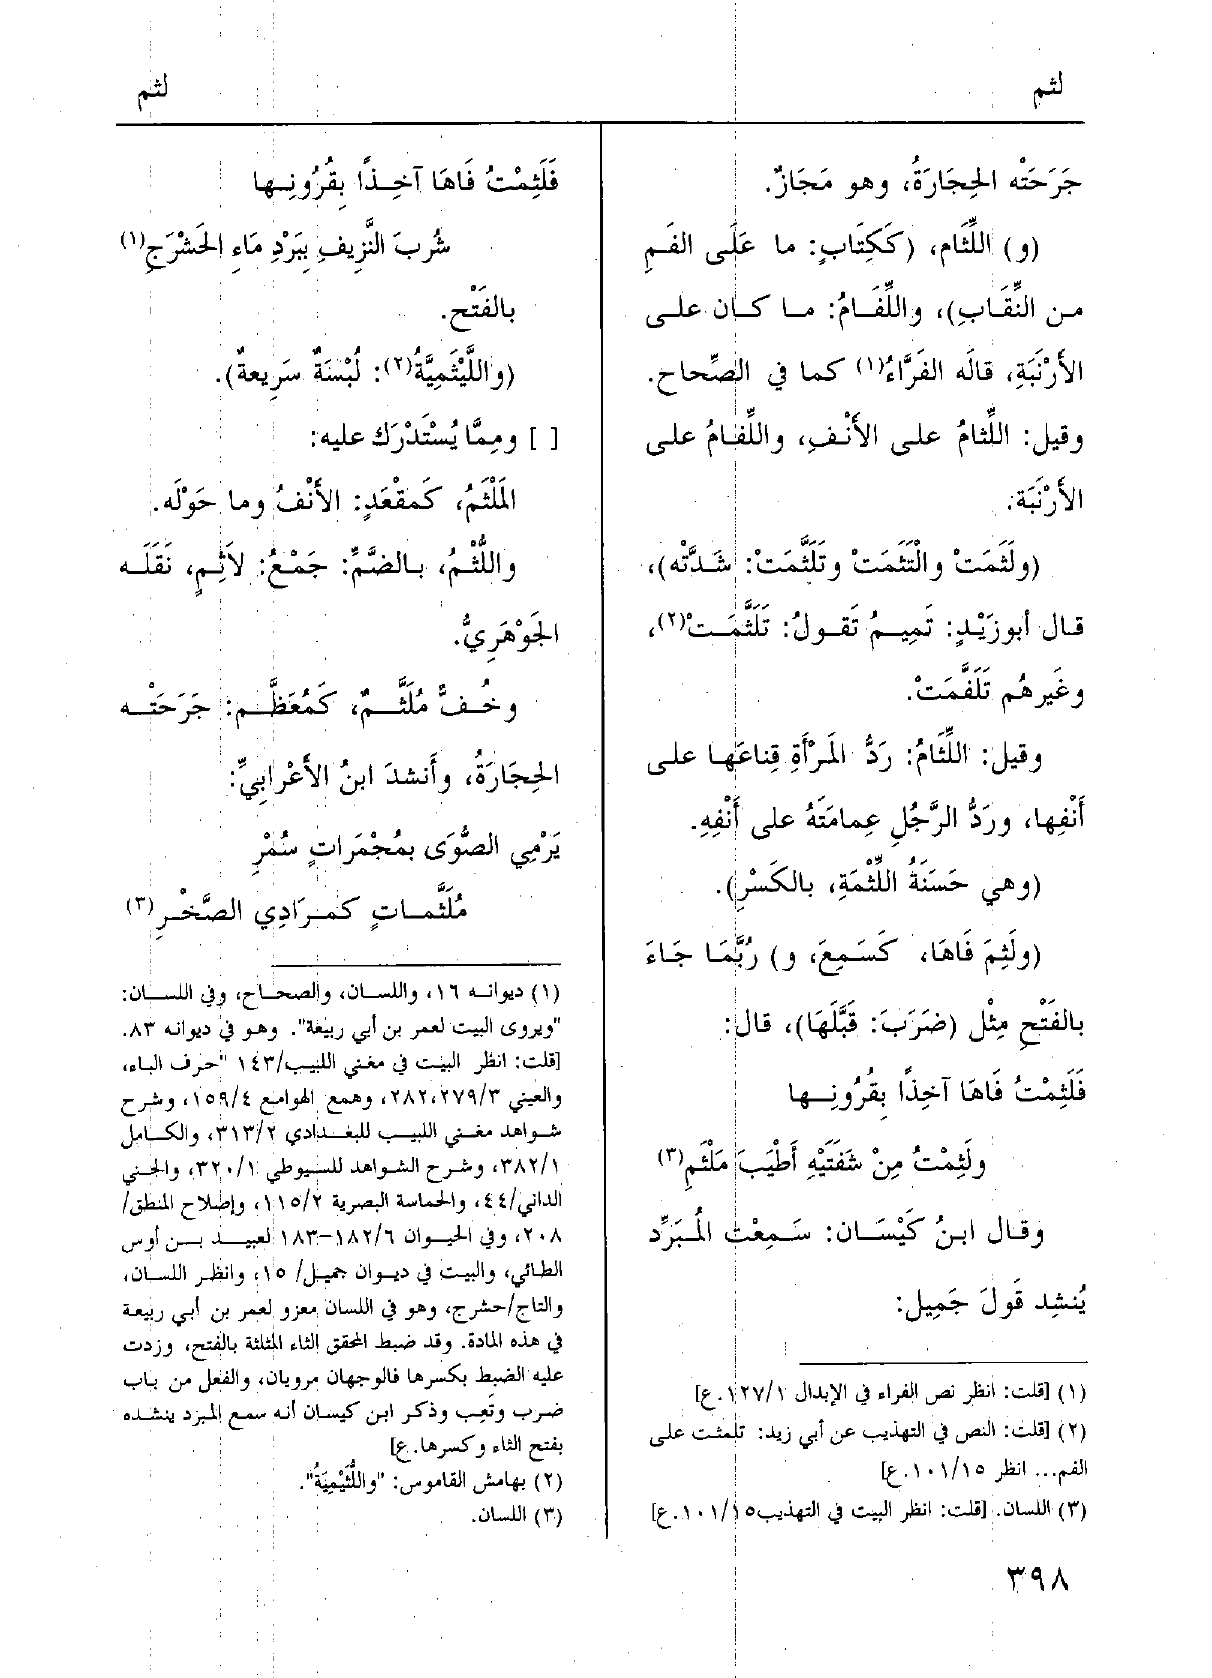 لثم
لثم
جَرَحَتْه الحِجَارَةُ، وهو مَجَازٌ.
(و) اللِّثَام، (كَكِتَابٍ: ما عَلَى الفَمِ
من النِّقَابِ)، واللِّفَامُ: ما كان على
الأَرْنَبَةِ، قالَه الفَرَّاءُ(١) كما في الصِّحاح.
وقيل: اللِّثامُ على الأَنْفِ، واللِّفَامُ على
الأَرْنَبَة.
(ولَثَمَتْ والْتَثَمَتْ وتَلَثَّمَتْ: شَدَّتْه)،
قال أبوزَيْدٍ: تَمِيمٌ تَقولُ: تَلَثَّمَتْ(٢)،
وغَيرهُم تَلَفَّمَتْ.
وقيل: اللِّثَامُ: رَدُّ المَرْأَةِ قِناعَها على
أَنْفِها، ورَدُّ الرَّجُلِ عِمامَتَهُ على أَنْفِهِ.
(وهي حَسَنَةُ اللِّثْمَةِ، بالكَسْرِ).
(ولَثِمَ فَاهَا، كَسَمِعَ، و) رُبَّمَا جَاءَ
بالفَتْحِ مِثْل (ضَرَبَ: قَبَّلَهَا)، قال:
فَلَثِمْتُ فَاهَا آخِذًا بِقُرُونِها
ولَثِمْتُ مِنْ شَفَتَيْهِ أَطْيَبَ مَلْثَمِ(٣)
وقال ابنُ كَيْسَان: سَمِعْتُ المُبَرِّد
يُنشِد قَولَ جَمِيل:
(١) [قلت: انظر نص الفراء في الإبدال ١٢٧/١.ع]
(٢) [قلت: النص في التهذيب عن أبي زيد: تلمثت على
الفم... انظر ١٠١/١٥.ع]
(٣) اللسان. [قلت: انظر البيت في التهذيب١٠١/١٥.ع]
فَلَثِمْتُ فَاهَا آخِذًا بِقُرُونِها
شُربَ النَّزِيفِ بِبَرْدِ مَاءِ الحَشْرَجِ(١)
بالفَتْح.
(واللَّيْثَمِيَّةُ(٢): لُبْسَةٌ سَرِيعةٌ).
[ ] ومِمَّا يُسْتَدْرَك عليه:
المَلْثَمُ، كَمقْعَدٍ: الأَنْفُ وما حَوْلَه.
واللُّثْمُ، بالضَّمِّ: جَمْعُ: لاَثِمٍ، نَقَلَه
الجَوْهَرِيُّ.
وخُفٌّ مُلَثَّمٌ، كَمُعَظَّمٍ: جَرَحَتْه
الحِجَارَةُ، وأَنشدَ ابنُ الأَعْرابِيِّ:
يَرْمِي الصُّوَى بمُجْمَراتٍ سُمْرِ
مُلَثَّماتٍ كمرَادِي الصَّخْرِ(٣)
(١) ديوانه ١٦، واللسان، والصحاح، وفي اللسان:
"ويروى البيت لعمر بن أبي ربيعة". وهو في ديوانه ٨٣.
[قلت: انظر البيت في مغني اللبيب/١٤٣ "حرف الباء،
والعيني ٢٧٩/٣،٢٨٢، وهمع الهوامع ١٥٩/٤، وشرح
شواهد مغني اللبيب للبغدادي ٣١٣/٢، والكامل
٣٨٢/١، وشرح الشواهد للسيوطي ٣٢٠/١، والجني
الداني/٤٤، والحماسة البصرية ١١٥/٢، وإصلاح المنطق/
٢٠٨، وفي الحيوان ١٨٢/٦-١٨٣ لعبيد بن أوس
الطائي، والبيت في ديوان جميل/ ١٥، وانظر اللسان،
والتاج/حشرج، وهو في اللسان معزو لعمر بن أبي ربيعة
في هذه المادة. وقد ضبط المحقق الثاء المثلثة بالفتح، وزدت
عليه الضبط بكسرها فالوجهان مرويان، والفعل من باب
ضرب وتَعِب وذكر ابن كيسان أنه سمع المبرّد ينشده
بفتح الثاء وكسرها.ع]
(٢) بهامش القاموس: "واللُّثَيْمِيَةُ".
(٣) اللسان.
٣٩٨